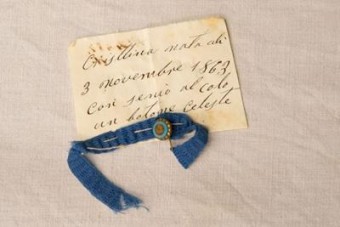 Cristtina nata di
3 novembre 1863
con segno al colo
un botone celeste